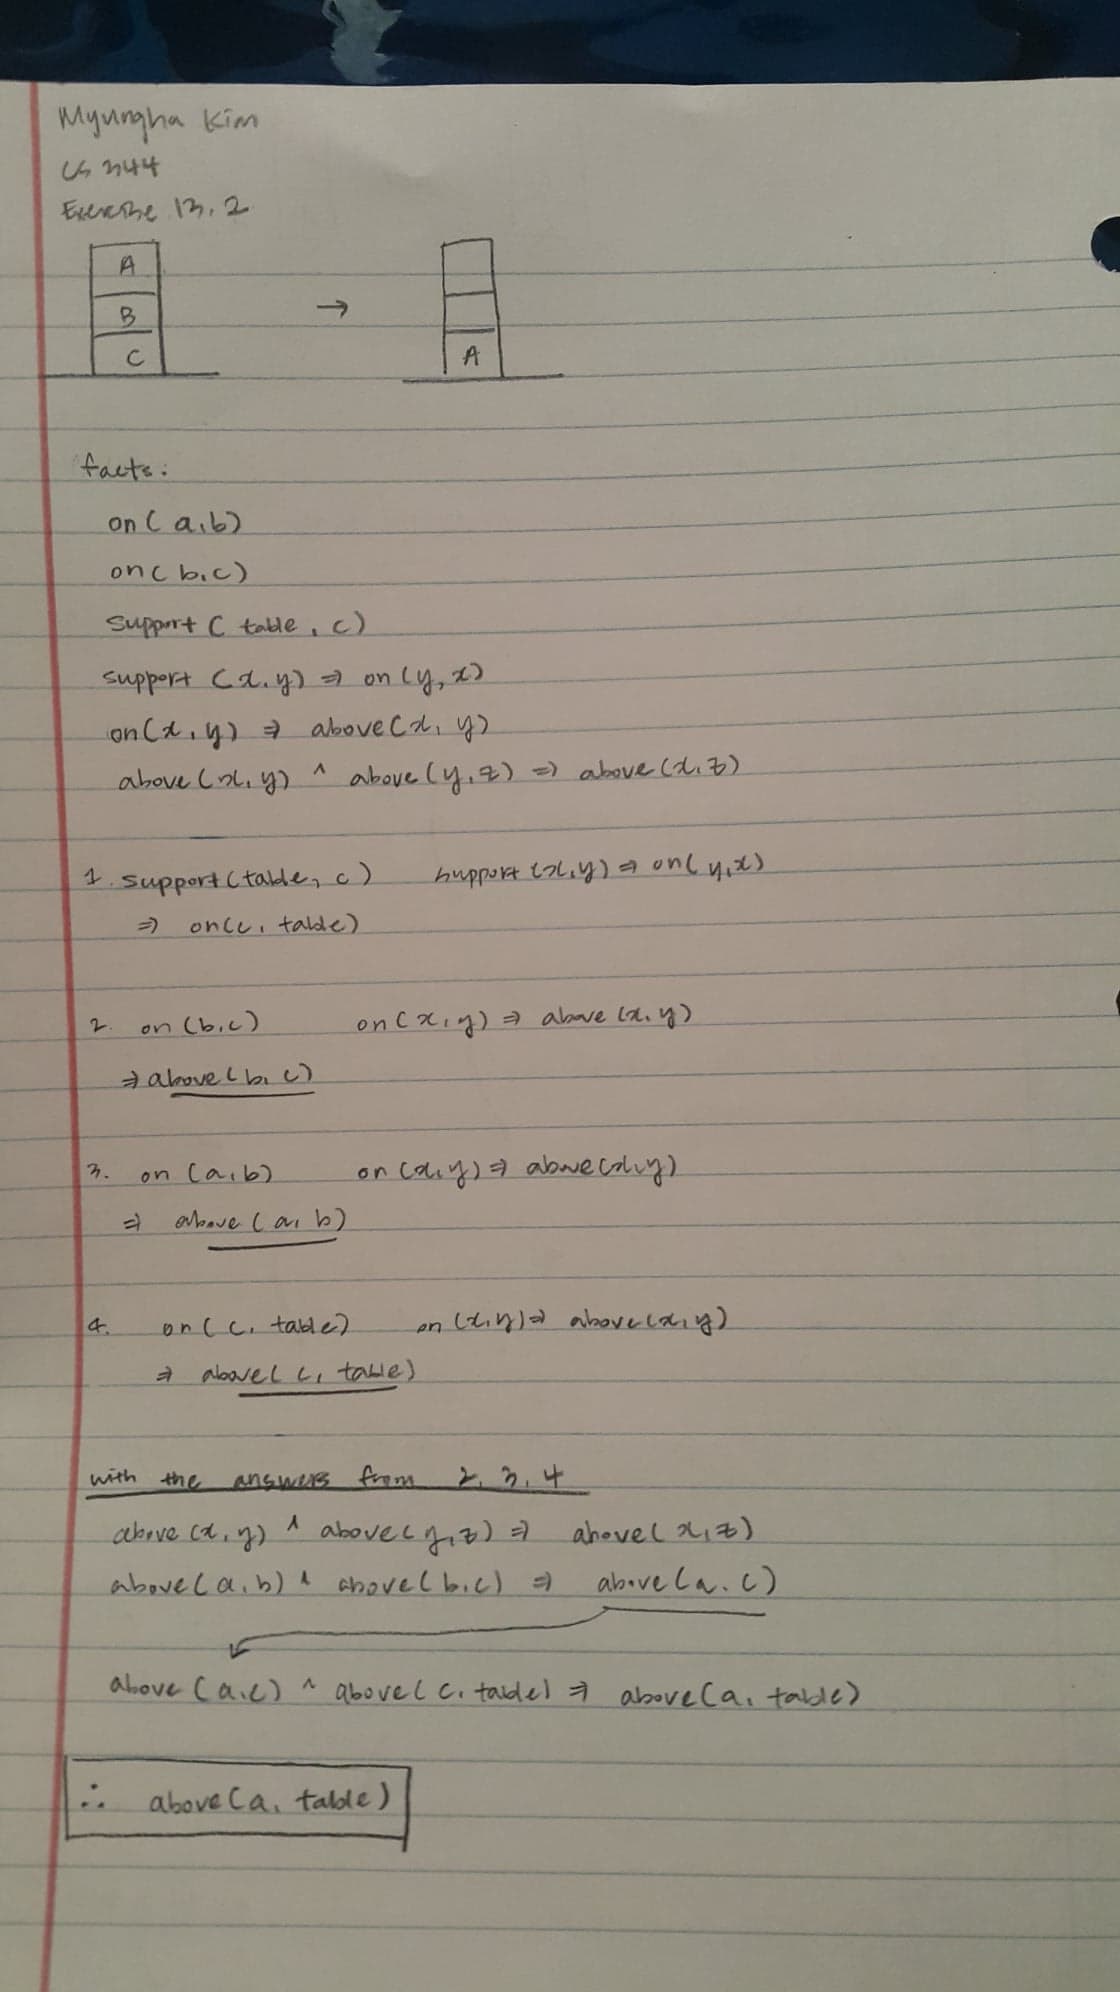 Myungha Kim
CS 344
Exercise 13.2
A
B
→
C
A
facts:
on(a,b)
on(b,c)
support(table, c)
support(x,y) ⇒ on(y,x)
on(x,y) ⇒ above(x,y)
above(x,y) ^ above(y,z) ⇒ above(x,z)
1. support(table, c) support(x,y) ⇒ on(y,x)
⇒ on(c, table)
2. on(b,c) on(x,y) ⇒ above(x,y)
⇒ above(b,c)
3. on(a,b) on(x,y) ⇒ above(x,y)
⇒ above(a,b)
4. on(c, table) on(x,y) ⇒ above(x,y)
⇒ above(c, table)
with the answers from 2, 3, 4
above(x,y) ^ above(y,z) ⇒ above(x,z)
above(a,b) ^ above(b,c) ⇒ above(a,c)
above(a,c) ^ above(c, table) ⇒ above(a, table)
∴ above(a, table)